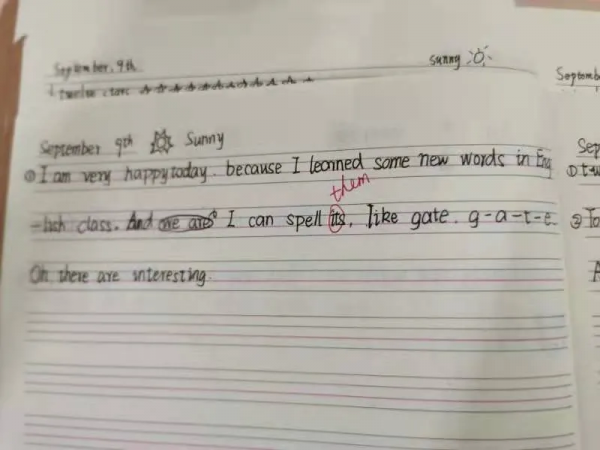 September. 9th. sunny
twelve stars
September 9th Sunny
Septemb
①I am very happy today. because I leanned some new words in Eng
them
-lish class. And we are I can spell its. Like gate. g-a-t-e.
Oh there are interesting.
Sep
① tw
② To